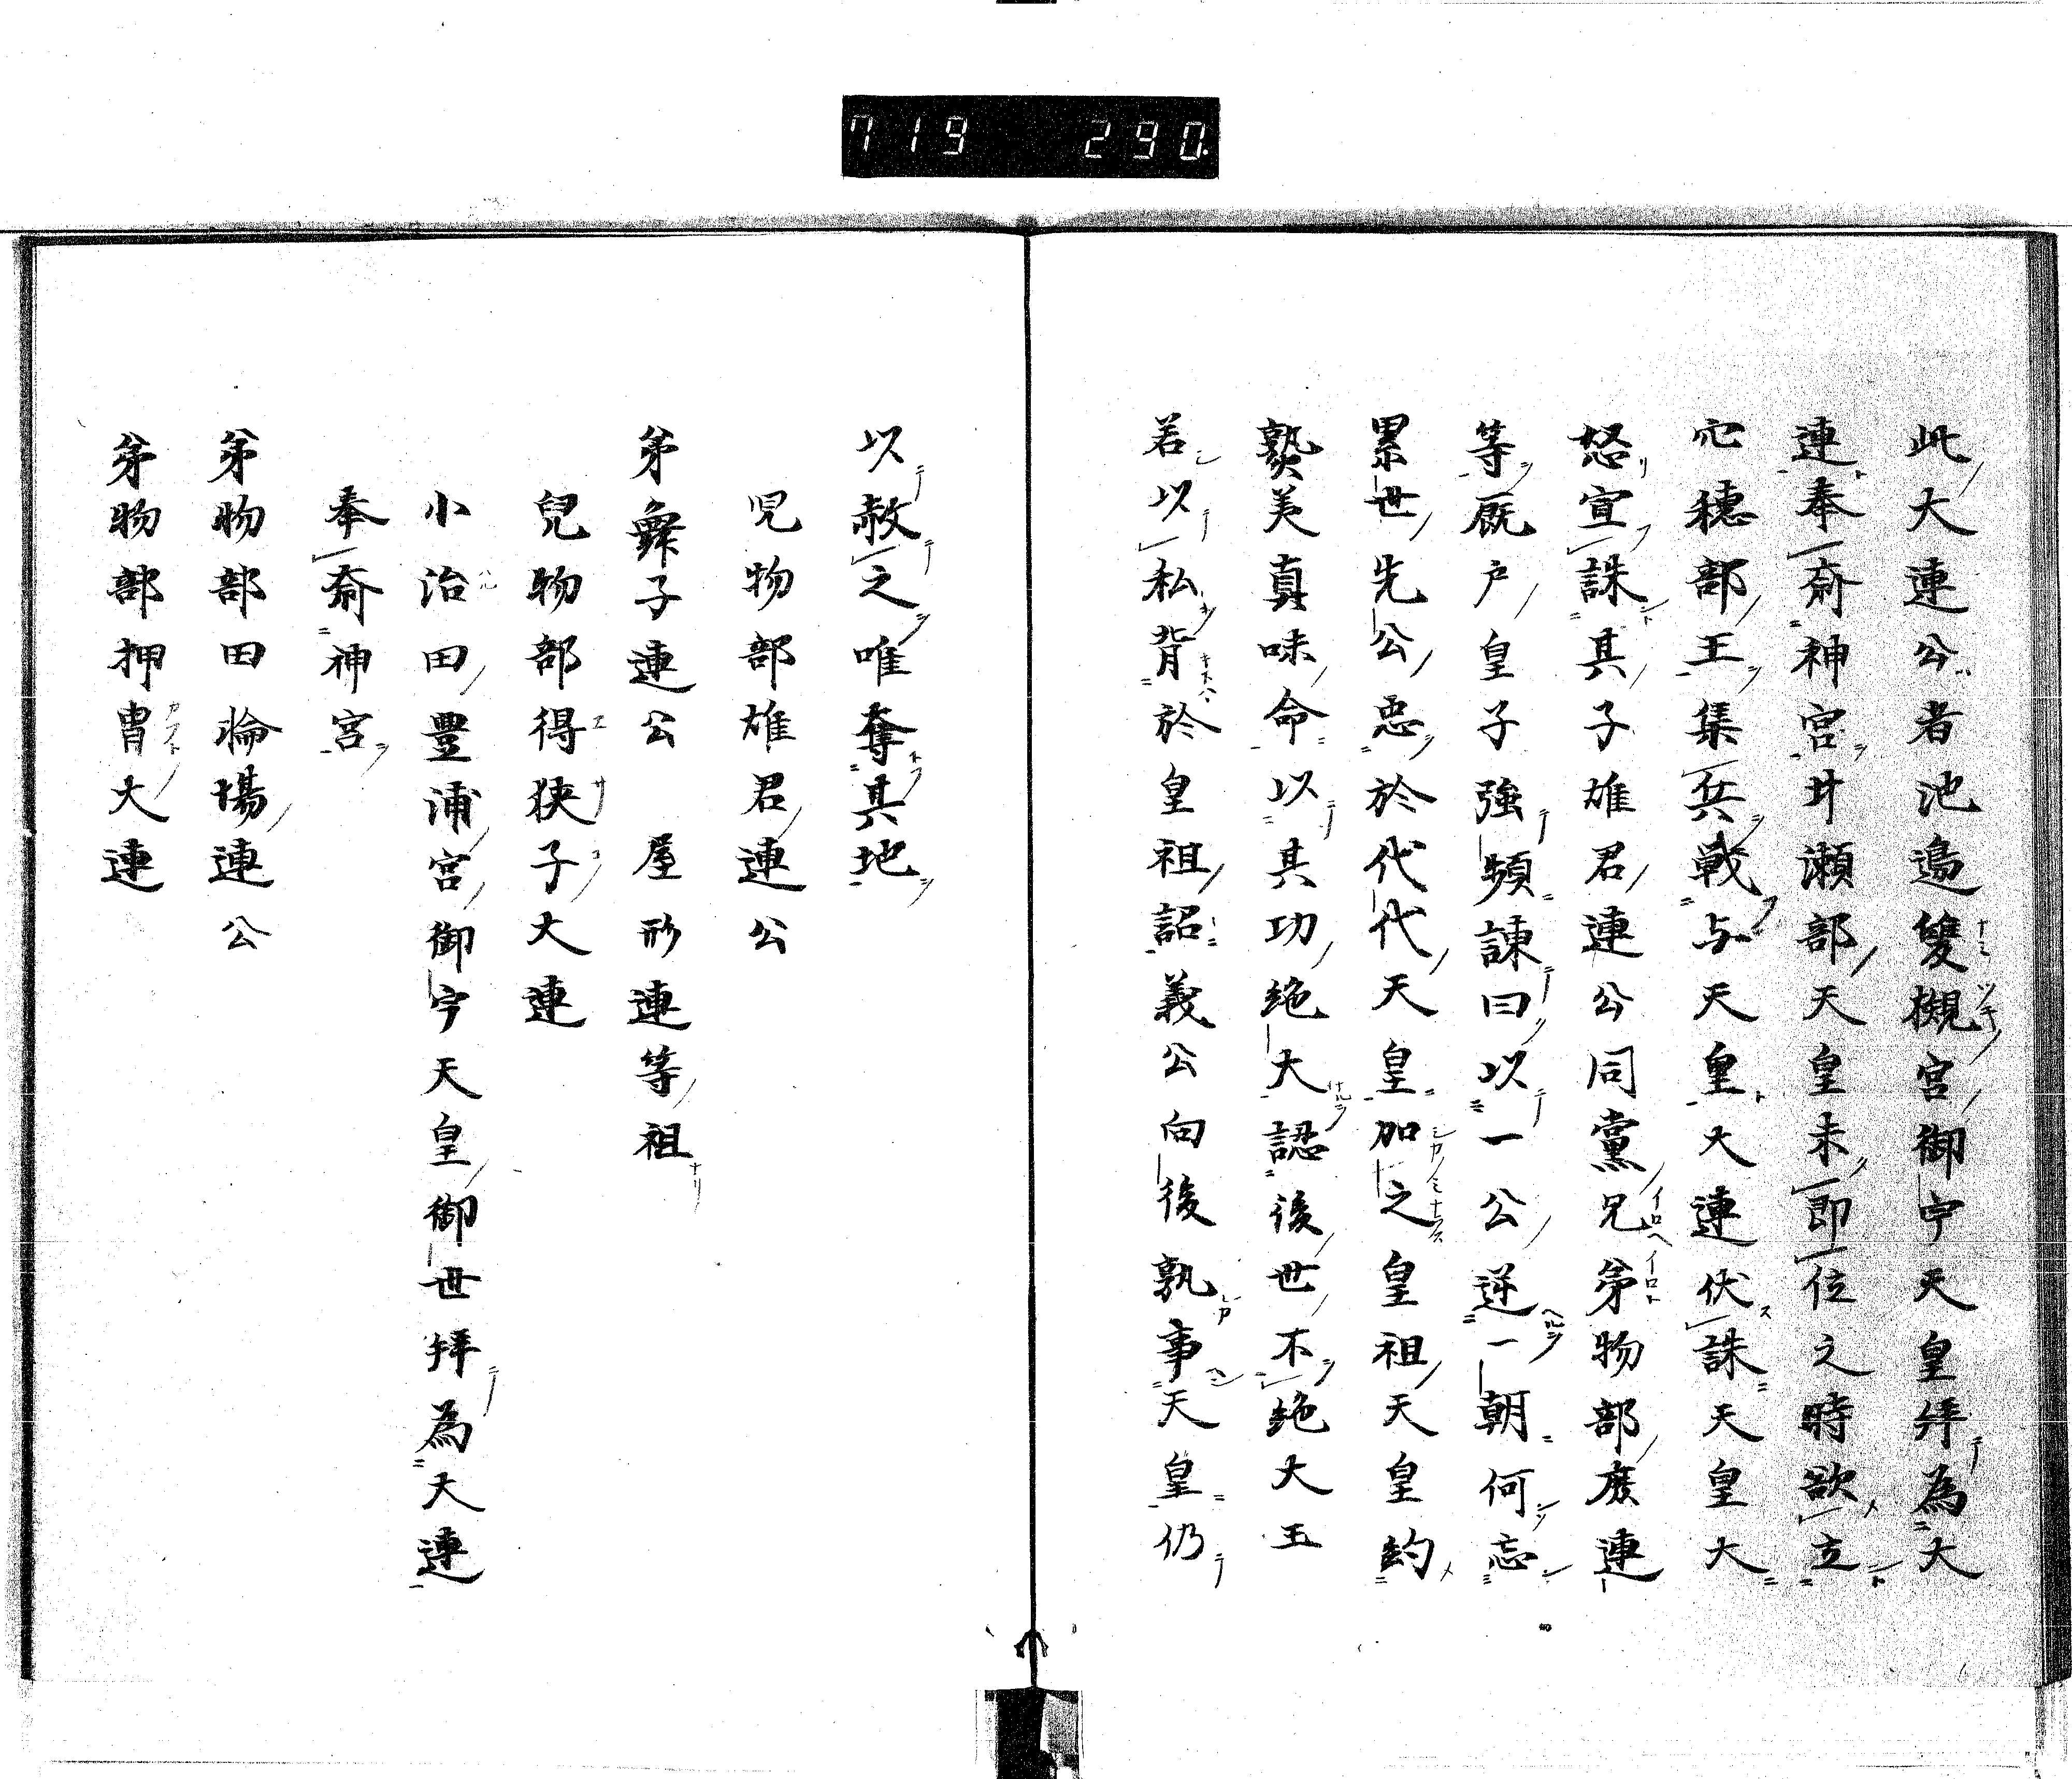 719 290
此大連公者池邉雙槻宮御宇天皇拜為大
連奉齋神宮廿瀬部天皇未即位之時欲立
穴穂部王集兵戦与天皇大連伏誅天皇大
怒宣誅其子雄君連公同黨兄弟物部廣連
等厩戸皇子強頻諌曰以一公逆一朝何忘
累世先公忠於代代天皇加之皇祖天皇約
美真味命以其功絶大認後世不絶大玉
若以私背於皇祖詔義公向後孰事天皇仍
以赦之唯奪其地
児物部雄君連公
弟子連公 屋形連等祖
兒物部得狭子大連
小治田豊浦宮御宇天皇御世拝為大連
奉齋神宮
弟物部田連公
弟物部押冑大連